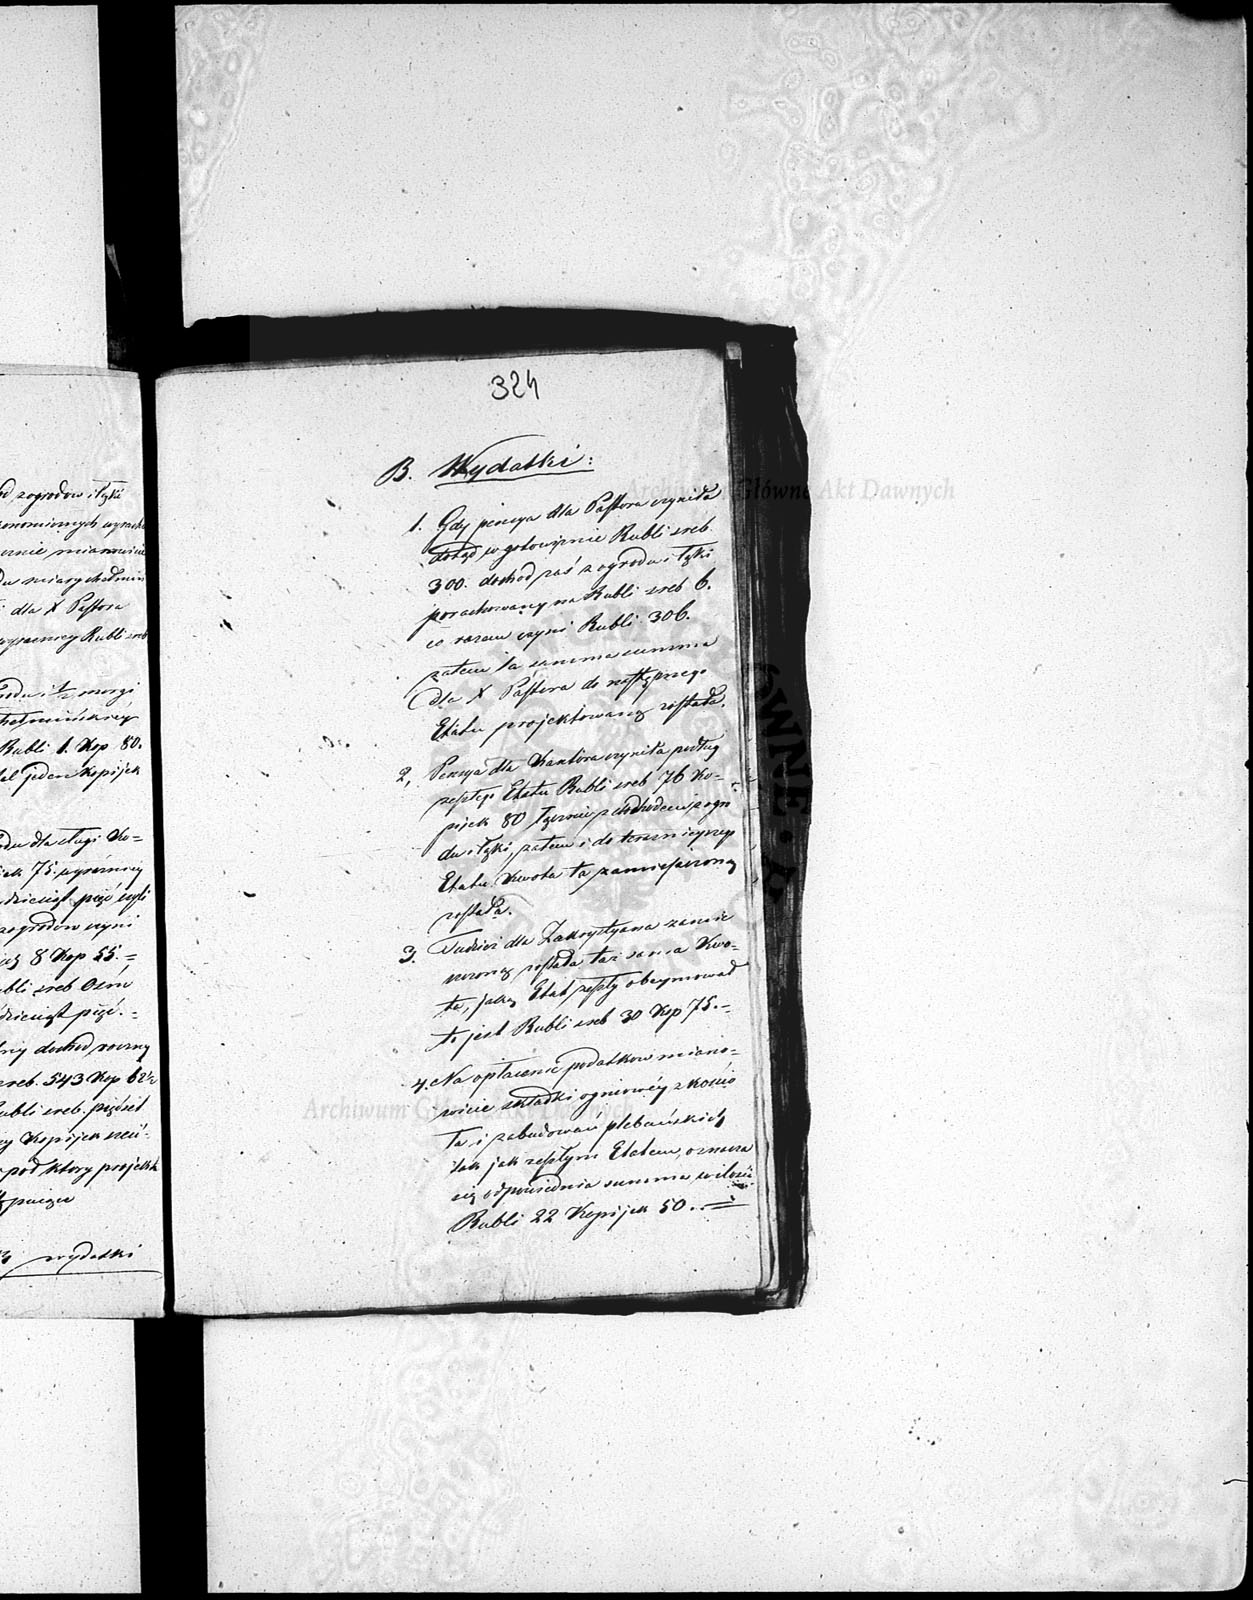 d, zogrodow i łąki
onomicznych wyrach
ernie mianowicie
miary chełmiń
dla X Pastora
Rubli sreb
morgi
chełmińskiéy
Rubli 1. Kop 80.
jeden Kopijek
du dla sługi Ko=
iek 75. wyrównaj
dziesiąt pięć czyli
zogrodow czyni
8 Kop 55.=
bli sreb Ośm
dziesiąt pięć.=
dochod roczny
sreb. 543 Kop 62½
ubli sreb. pięćset
Kopijek sześć:
pod ktory projekt
wydatki
324
B. Wydatki:
1. Gdy pensya dla Pastora czyniła
dotąd w gotowiznie Rubli sreb.
300. dochod zaś z ogrodu i łąki
porachowany na Rubli sreb 6.
co razem czyni Rubli 306.
zatem ta samma summa
dla X Pastora do następnego
Etatu projektowaną została.
2, Pensya dla Kantora czyniła podług
zeszłego Etatu Rubli sreb 76 Ko=
piiek 80 łącznie z dochodem z ogro
du i łąki, zatem i do teraznieyszego
Etatu Kwota ta zamieszczoną
została.
3. Tudzież dla Zakrystyana zamie
szczoną została taż sama Kwo=
ta, jaką Etat zeszły obeymował
to jest Rubli sreb 30 Kop 75.=
4. Na opłacenie podatkow miano=
wicie składki ogniowéy z kościo
ła i zabudowań plebańskich
tak jak zeszłym Etatem, oznacza
się odpowiednia summa w ilości
Rubli 22 Kopijek 50.=
Archiwum Główne Akt Dawnych
Archiwum Główne Akt Dawnych